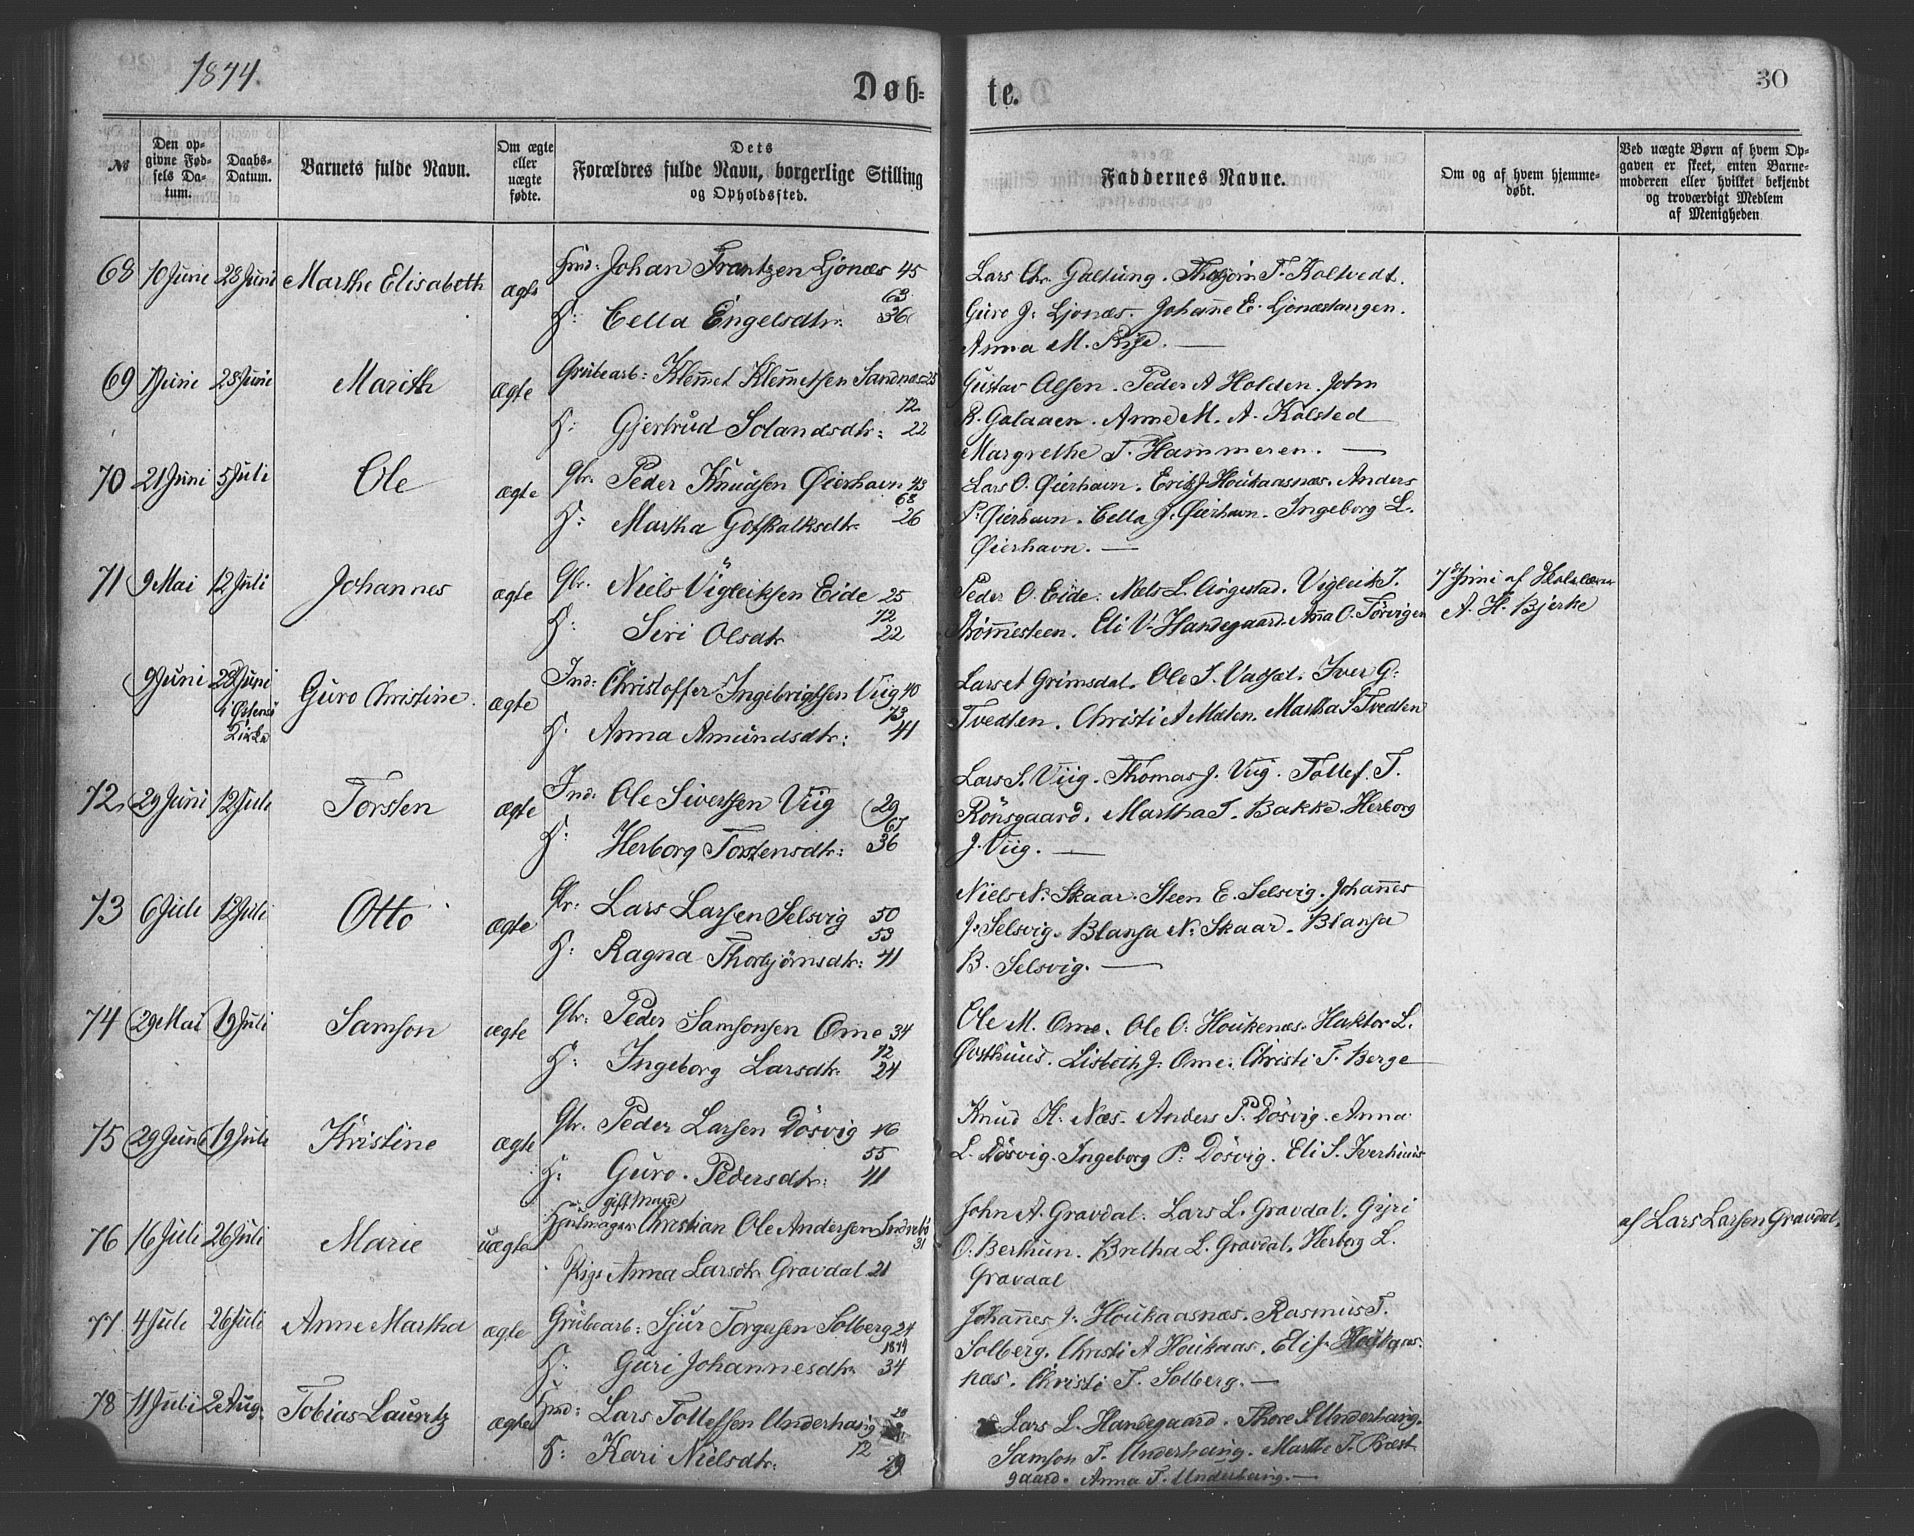 1874.
Døb=
te.
30
№
Den op-
givne Fød-
sels Da-
tum.
Daabs-
Datum.
Barnets fulde Navn.
Om ægte
eller
uægte
fødte.
Dets
Forældres fulde Navn, borgerlige Stilling
og Opholdssted.
Faddernes Navne.
Om og af hvem hjemme-
døbt.
Ved uægte Børn af hvem Op-
gaven er skeet, enten Barne-
moderen eller hvilket bekjendt
og troværdigt Medlem
af Menigheden
68 10 Juni 28 Juni Marthe Elisabeth ægte Johan Frantzen Ljonæs 45
63
H: Cella Engelsdtr: 36
Lars Chr. Galtung. Thorbjørn T. Kolltvedt.
Guro J. Ljonæs. Johanne E. Ljonæstangen.
Anna M. Rise. —
69 1 Juni 28 Juni Marith ægte Grubearb: Klemet Klemetsen Sandnæs 25
72
H: Gjertrud Solandsdtr: 22
Gustav Olsen. Peder A Holden. John
R. Galaaen. Anne M. A. Kolsted
Margrethe T. Hammeren. —
70 21 Juni 5 Juli Ole ægte Gbr. Peder Knudsen Øierhavn 43
68
H: Martha Gotskalksdtr. 26
Lars O. Øierhavn. Erik J. Houkaasnæs. Anders
P. Øierhavn. Cella J. Øierhavn. Ingeborg L.
Øierhavn. —
71 9 Mai 12 Juli Johannes ægte Gbr. Niels Vigleiksen Eide 25
72
H: Siri Olsdtr 22
Peder O. Eide. Nels L. Augestad. Vigleik J.
Strømmesteen. Eli V. Handegaard. Anna O. Tørvigen
7de Juni af Holslærer
A. H. Bjerke
9 Juni 28 Juni Guro Christine ægte Ind: Christoffer Ingebrigtsen Viig 40
i Østensø
Kirke
73
H. Anna Amundsdtr: 41
Lars et Grimsdal. Ole S. Vatsæl. Iver G.
Tvedten. Christi A Malen. Martha S Tvedten
72 29 Juni 12 Juli Torsten ægte Ind: Ole Sivertsen Viig 29
67
H: Herborg Torstensdtr: 36
Lars S. Viig. Thomas J. Viig. Tollef. T.
Rønsgaard. Martha T. Bakke. Herborg
J. Viig. —
73 6 Juli 12 Juli Otto ægte Gbr: Lars Larsen Selsvig 50
53
H: Ragna Thorbjørnsdtr: 41
Niels N. Skaar. Steen E. Selsvig. Johannes
J. Selsvig. Blansa N. Skaar. Blansa
B. Selsvig. —
74 29 Mai 19 Juli Samson ægte Gbr: Peder Samsonsen Ome 34
72
H: Ingeborg Larsdtr. 24
Ole M. Ome. Ole O. Houkenæs. Haktor L.
Østhuus. Lisbeth J. Ome. Christi T. Berge
75 29 Juni 19 Juli Kristine ægte Gbr. Peder Larsen Døsvig 46
55
H: Guro Pedersdtr: 41
Knud H. Næs. Anders P. Døsvig. Anna
L. Døsvig. Ingeborg P. Døsvig. Eli S. Iverhuus
76 16 Juli 26 Juli Marie uægte gift Mand
Hjulmager Christian Ole Andersen 31
Pige Anna Larsdtr Gravdal 21
John A. Gravdal. Lars L. Gravdal. Gyri
O. Berhun. Bretha L. Gravdal. Herborg L.
Gravdal
af Lars Larsen Gravdal.
77 4 Juli 26 Juli Anne Martha ægte Grubearb: Sjur Torgersen Solberg 24
H: Guri Johannesdtr 34
Johannes J. Houkaasnæs. Rasmus T.
Solberg. Christi A Houkaas. Eli J. Houkaas
næs. Christi T. Solberg. —
78 11 Juli 2 Aug. Tobias Lauritz ægte Lars Tollefsen Underhaug 28
72
H: Kari Nielsdtr. 29
Lars L. Handegaard. Thore S Underhaug.
Samson T. Underhaug. Marthe T. Præst
gaard. Anna T. Underhaug. —